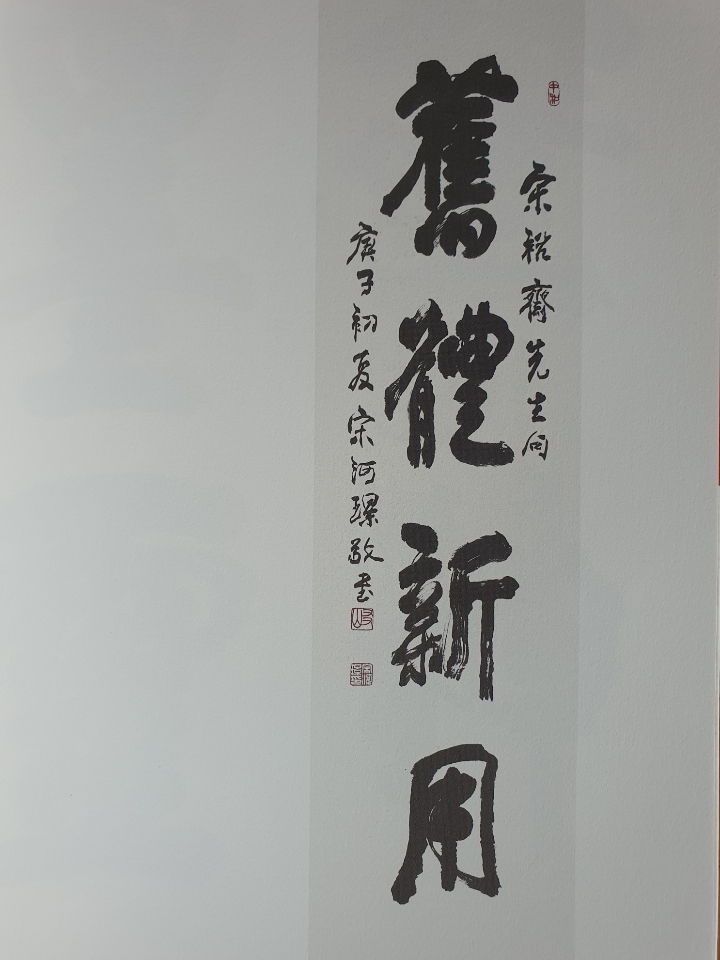 宋裕齋先生句
舊體新用
庚子初夏宋河璟敬書